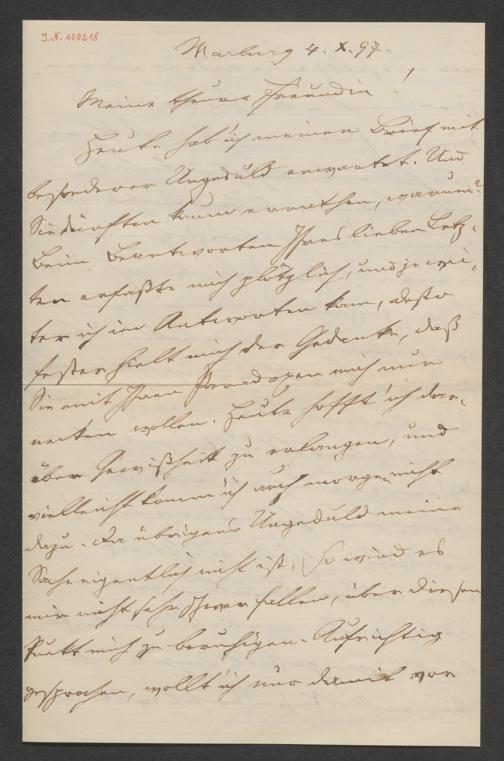 J.N. 100218
Marburg 4. X. 97.
Meine theure Freundin!
Heute hab' ich meinen Brief mit
besonderer Ungeduld erwartet. Und
Sie dürften kaum errathen, warum?
Beim Beantworten Ihres lieben Letz-
ten erfaßte mich plötzlich, und je wei-
ter ich im Antworten kam, desto
fester hielt mich der Gedanke, daß
Sie mit Ihren Paradoxen mich nur
necken wollen. Heute hofft' ich dar-
über Gewißheit zu erlangen, und
vielleicht komm' ich auch morgen nicht
dazu. Da übrigens Ungeduld meine
Sache eigentlich nicht ist, so wird es
mir nicht sehr schwer fallen, über diesen
Punkt mich zu beruhigen. Aufrichtig
gesprochen, wollt' ich nur damit von